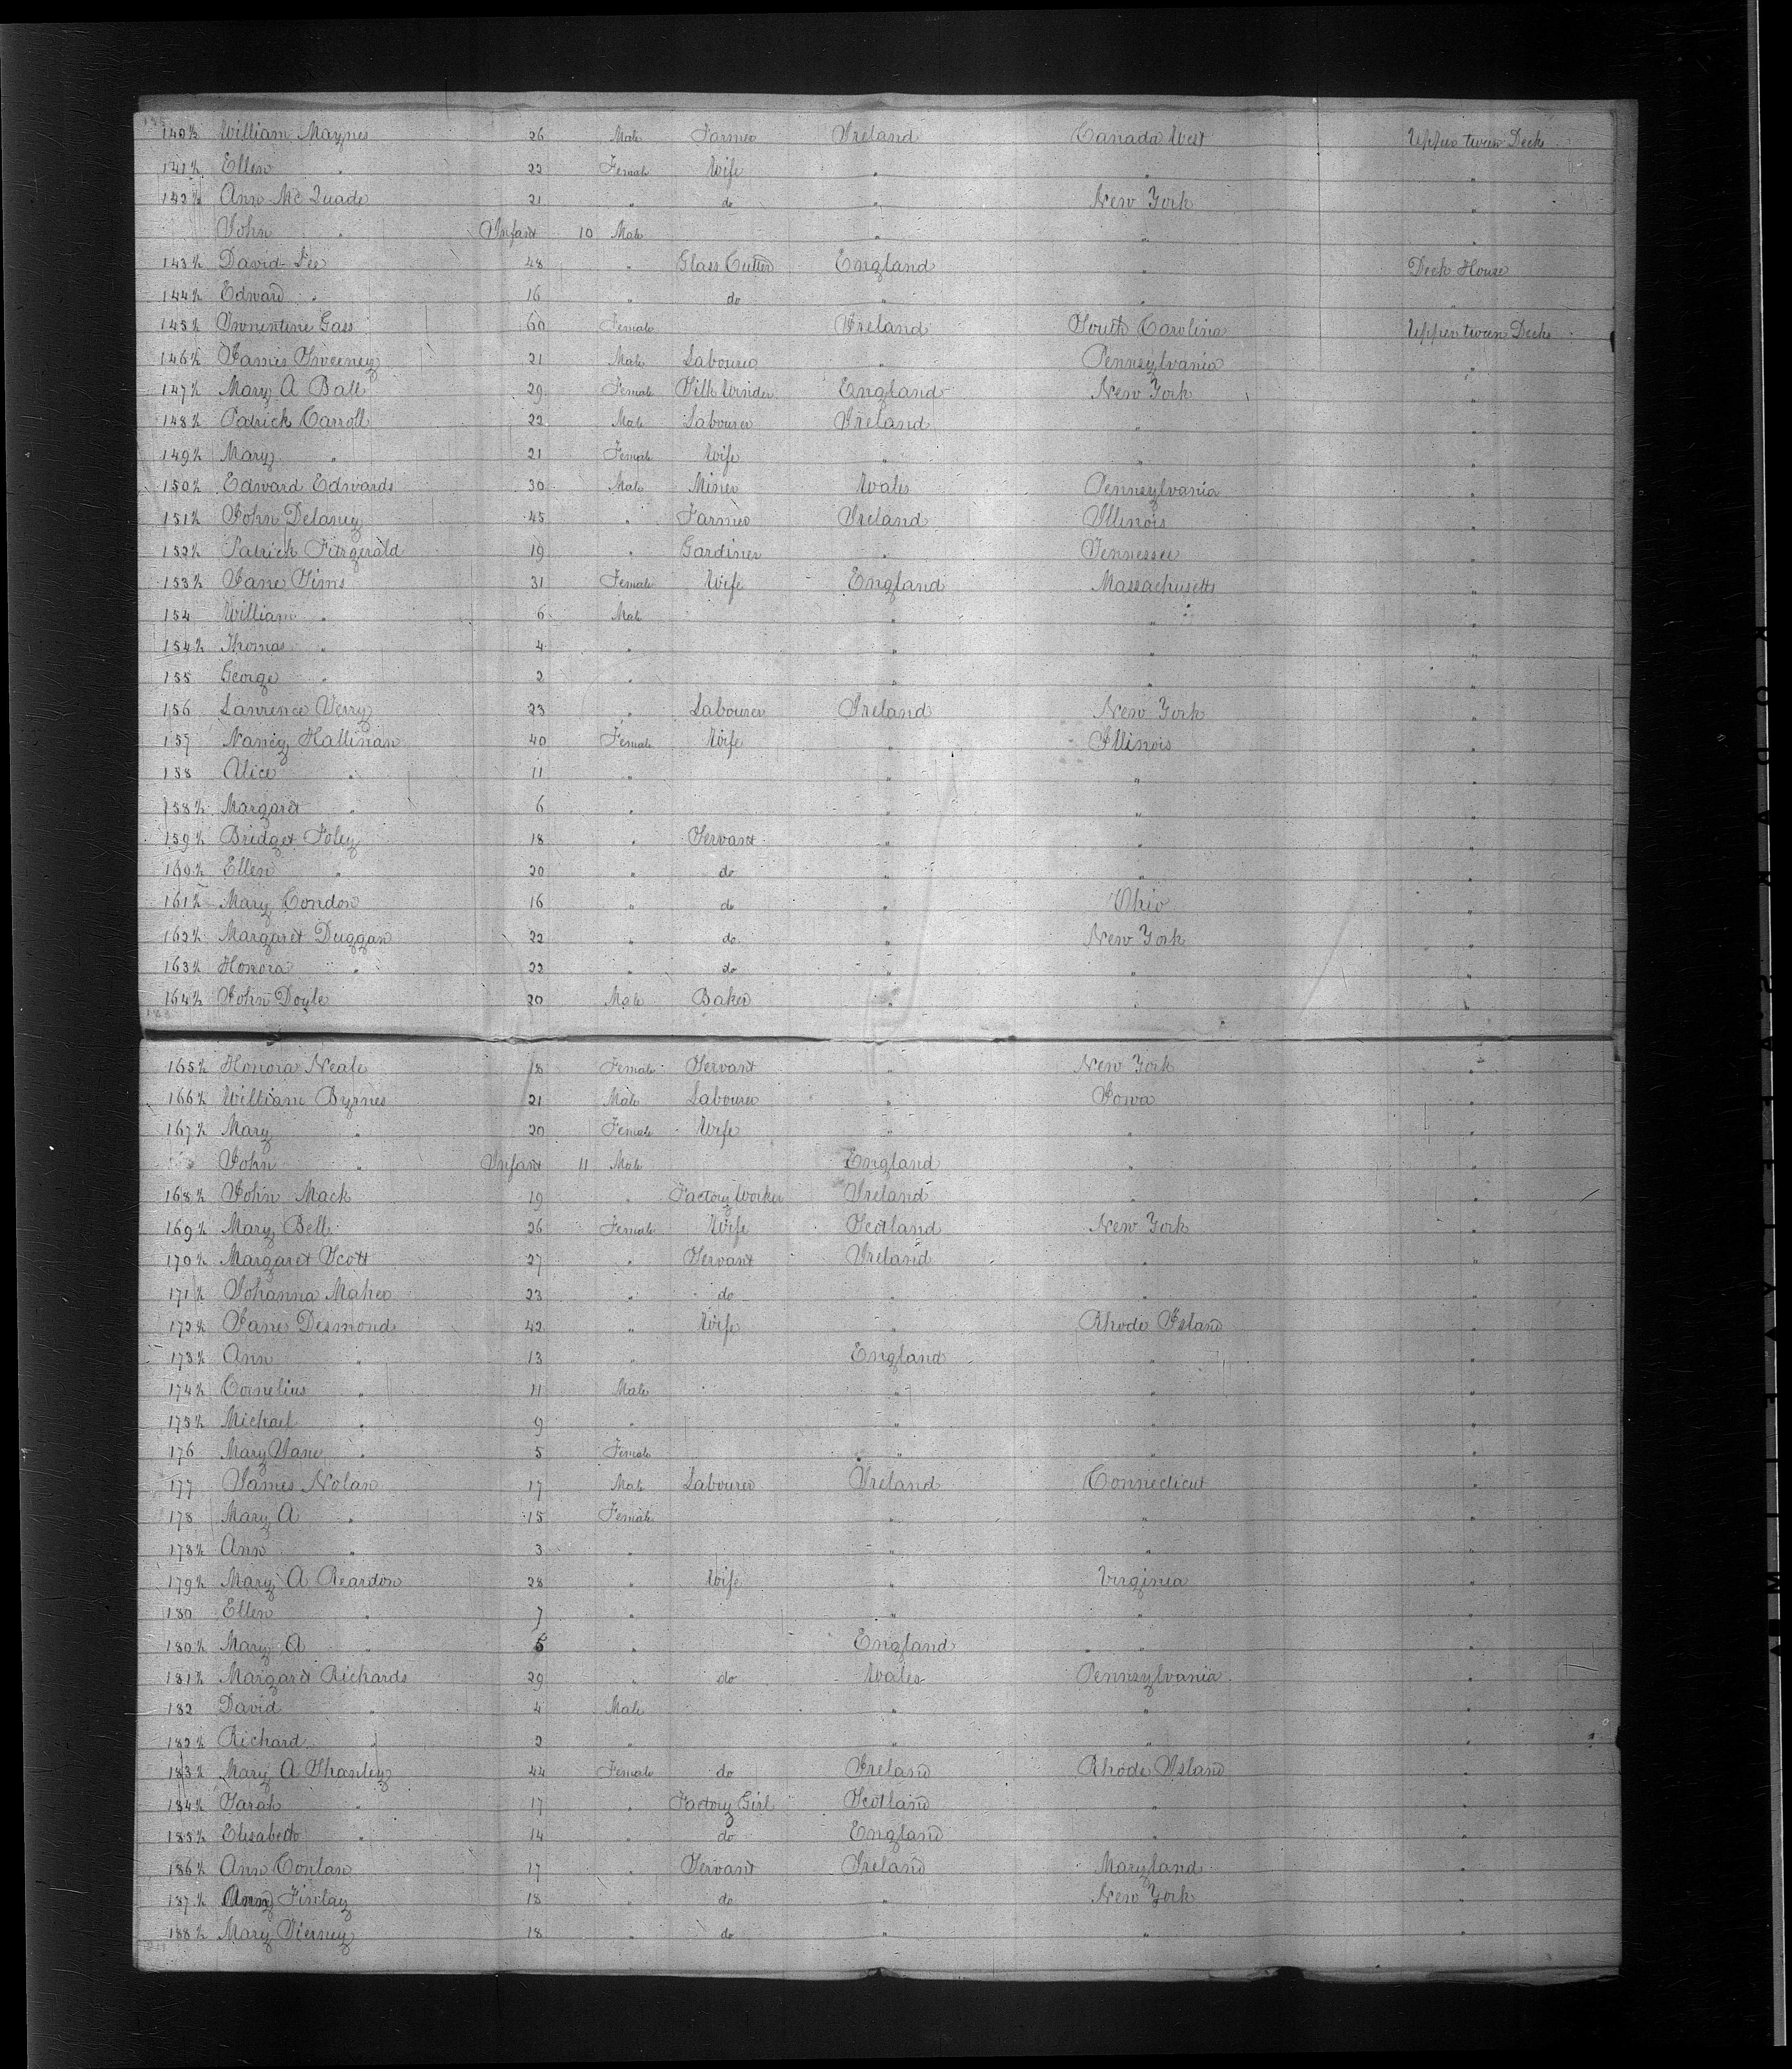 140½ William Maynes 26 Male Farmer Ireland Canada West Upper tween Decks
141½ Ellen " 22 Female Wife " " "
142½ Ann Mc Quade 21 " do " New York "
John " Infant 10 Male " " "
143½ David Fee 48 " Glass Cutter England " Deck House
144½ Edward " 16 " do " " "
145½ Gass 60 Female Ireland South Carolina Upper tween Decks
146½ James Sweeney 21 Male Labourer " Pennsylvania "
147½ Mary A Ball 29 Female Silk Winder England New York "
148½ Patrick Carroll 22 Male Labourer Ireland " "
149½ Mary " 21 Female Wife " " "
150½ Edward Edwards 30 Male Miner Wales Pennsylvania "
151½ John Delaney 45 " Farmer Ireland Illinois "
152½ Patrick Fitzgerald 19 " Gardiner " Tennessee "
153½ Jane Sims 31 Female Wife England Massachusetts "
154 William " 6 Male " " "
154½ Thomas " 4 " " " "
155 George " 2 " " " "
156 Lawrence Verry 23 " Labourer Ireland New York "
157 Nancy Hallinan 40 Female Wife " Illinois "
158 Alice " 11 " " " "
158½ Margaret " 6 " " " "
159½ Bridget Foley 18 " Servant " " "
160½ Ellen " 20 " do " " "
161½ Mary Condon 16 " do " Ohio "
162½ Margaret Duggan 22 " do " New York "
163½ Honora " 22 " do " " "
164½ John Doyle 20 Male Baker " " "
165½ Honora Neale 18 Female Servant " New York "
166½ William Byrnes 21 Male Labourer " Iowa "
167½ Mary " 20 Female Wife " " "
John " Infant 11 Male England " "
168½ John Mack 19 " Factory Worker Ireland " "
169½ Mary Bell 26 Female Wife Scotland New York "
170½ Margaret Scott 27 " Servant Ireland " "
171½ Johanna Maher 23 " do " " "
172½ Jane Desmond 42 " Wife " Rhode Island "
173½ Ann " 13 " England " "
174½ Cornelius " 11 Male " " "
175½ Michael " 9 " " " "
176 Mary Jane " 5 Female " " "
177 James Nolan 17 Male Labourer Ireland Connecticut "
178 Mary A " 15 Female " " "
178½ Ann " 3 " " " "
179½ Mary A Reardon 28 " Wife " Virginia "
180 Ellen " 7 " " " "
180½ Mary A " 5 " England " "
181½ Margaret Richards 29 " do Wales Pennsylvania "
182 David " 4 Male " " "
182½ Richard " 2 " " " "
183½ Mary A Shanley 44 Female do Ireland Rhode Island "
184½ Sarah " 17 " Factory Girl Scotland " "
185½ Elisabeth " 14 " do England " "
186½ Ann Conlan 17 " Servant Ireland Maryland "
187½ Ann Finlay 18 " do " New York "
188½ Mary Tierney 18 " do " " "